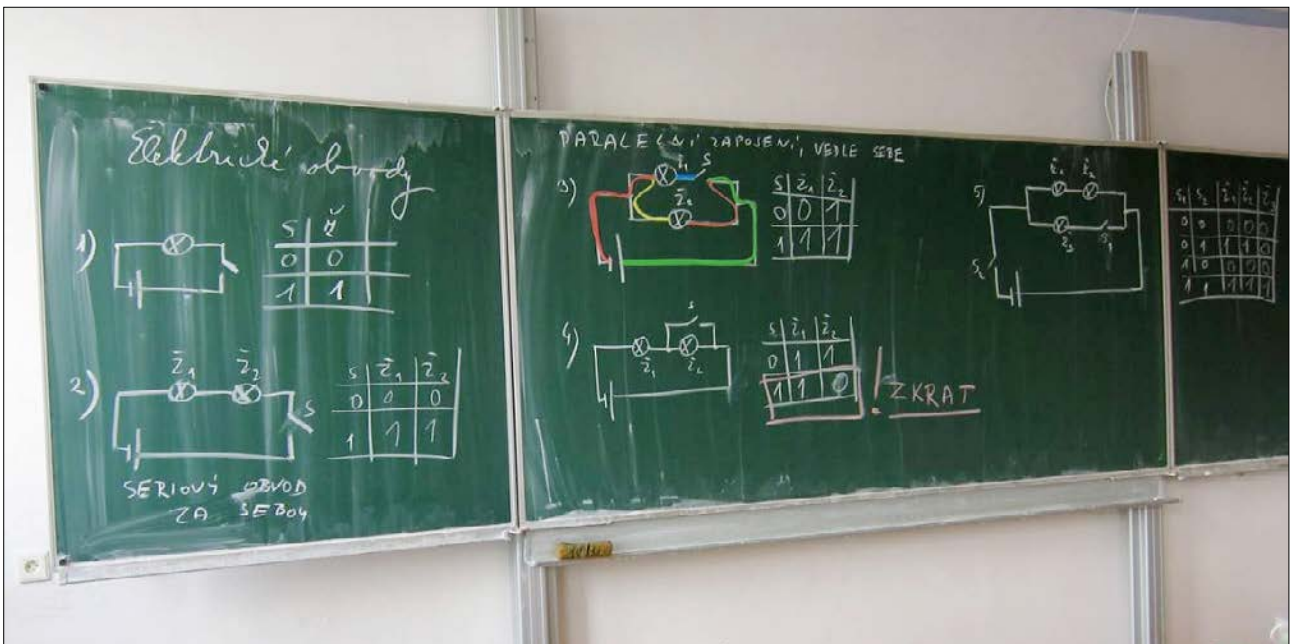 Elektrické obvody
1)
S Ž
0 0
1 1
2)
Ž₁ Ž₂
S
S Ž₁ Ž₂
0 0 0
1 1 1
SERIOVÝ OBVOD
ZA SEBOU
PARALELNÍ ZAPOJENÍ, VEDLE SEBE
3)
Ž₁ S
Ž₂
S Ž₁ Ž₂
0 0 1
1 1 1
4)
S
Ž₁ Ž₂
S Ž₁ Ž₂
0 1 1
1 1 0
! ZKRAT
5)
Ž₁ Ž₂
Ž₃ S₁
S₂
S₁ S₂ Ž₁ Ž₂ Ž₃
0 0 0 0 0
0 1 1 1 0
1 0 0 0 0
1 1 1 1 1